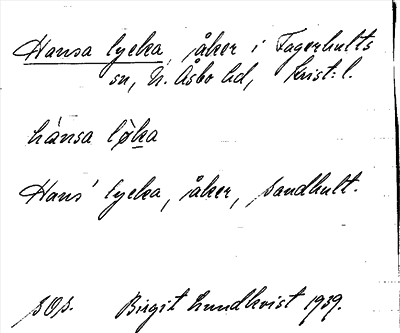 Hansa lycka, åker i Fagerhults
sn, N. Åsbo hd, Krist: l.
hànsa løka
Hans' lycka, åker, Sandhult.
SOS. Birgit Lundkvist 1939.